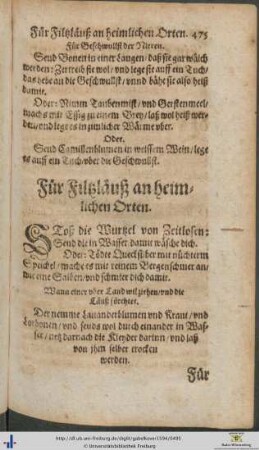 Für Filtzläuß an heimlichen Orten. 475
Für Geschwullst der Nieren.
Seud Bonen in einer Laugen / daß sie gar wäich
werden: Zerreib sie wol / vnd lege sie auff ein Tuch /
das hebe an die Geschwullst / vnnd bähe sie also heiß
damit.
Oder: Nimm Taubenmist / vnd Gerstenmeel /
machs mit Essig zu einem Brey / laß wol heiß wer-
den / vnd lege es in zimlicher Wärme vber.
Oder.
Seud Camillenblumen in weissem Wein / lege
es auff ein Tuch / vber die Geschwullst.
Für Filtzläuß an heim-
lichen Orten.
Stoß die Wurtzel von Zeitlosen:
Seud die in Wasser damit wäsche dich.
Oder: Tödte Quecksilber mit nüchterm
Speichel / mache es mit reinem Bergenschmer an /
wie eine Salben / vnd schmier dich damit.
Wann einer vber Land wil ziehen / vnd die
Läuß förchtet.
Der nemme Lauanderblumen vnd Kraut / vnd
Lorbonen / vnd seuds wol durch einander in Was-
ser / netz darnach die Kleyder darinn / vnd laß
von jhn selber trocken
werden.
Für
http://dl.ub.uni-freiburg.de/diglit/gabelkover1594/0491
© Universitätsbibliothek Freiburg